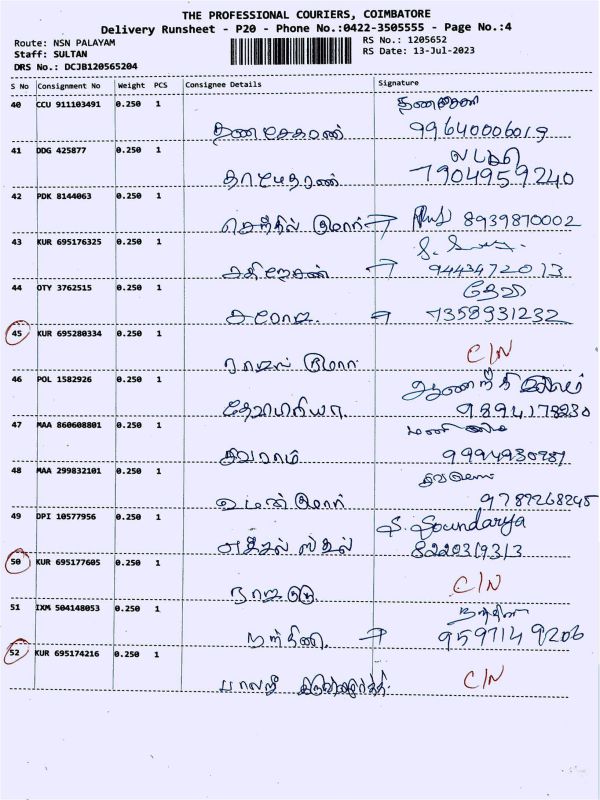 THE PROFESSIONAL COURIERS, COIMBATORE
Delivery Runsheet - P20 - Phone No.:0422-3505555 - Page No.:4
Route: NSN PALAYAM
RS No.: 1205652
Staff: SULTAN
RS Date: 13-Jul-2023
DRS No.: DCJB120565204
S No Consignment No Weight PCS Consignee Details Signature
40 CCU 911103491 0.250 1
தனசேகரன் 99640006019
41 DDG 425877 0.250 1
தாமோதரன் 7904959240
42 PDK 8144063 0.250 1
செந்தில் குமார் 8939870002
43 KUR 695176325 0.250 1
9443472013
44 OTY 3762515 0.250 1 தேவி
சரோஜா. 7358931232
45 KUR 695280334 0.250 1 C/N
குமார்
46 POL 1582926 0.250 1
9894178230
47 MAA 860608801 0.250 1 மணி
சிவராம் 9994930787
48 MAA 299832101 0.250 1
குமார் 9789268245
49 DPI 10577956 0.250 1 S. Soundarya
எக்சல் ஸ்கூல் 822031913
50 KUR 695177605 0.250 1 C/N
51 IXM 504148053 0.250 1 நந்தினி
நந்தினி. 9597149206
52 KUR 695174216 0.250 1 C/N
பாலாஜி